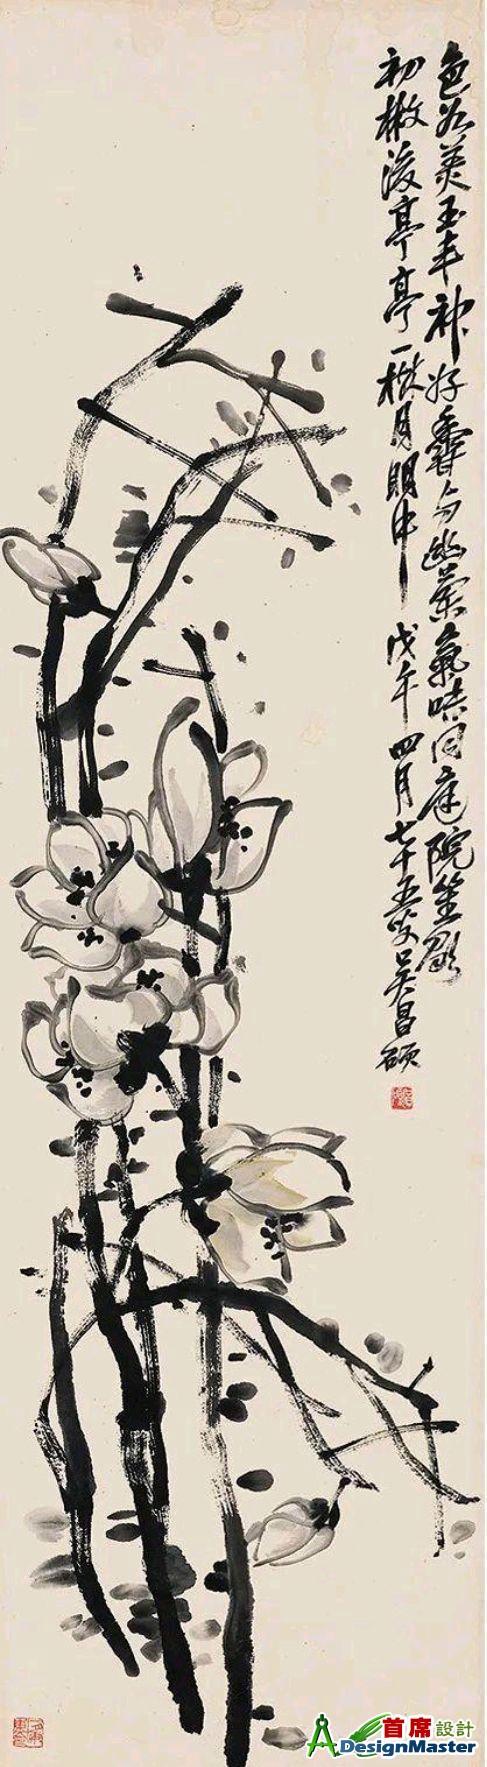 色美玉丰神好馨与幽蘭氣味同庭院笙歌
初後亭亭一樹月明中 戊午四月七十五叟吳昌碩
首席設計
DesignMaster